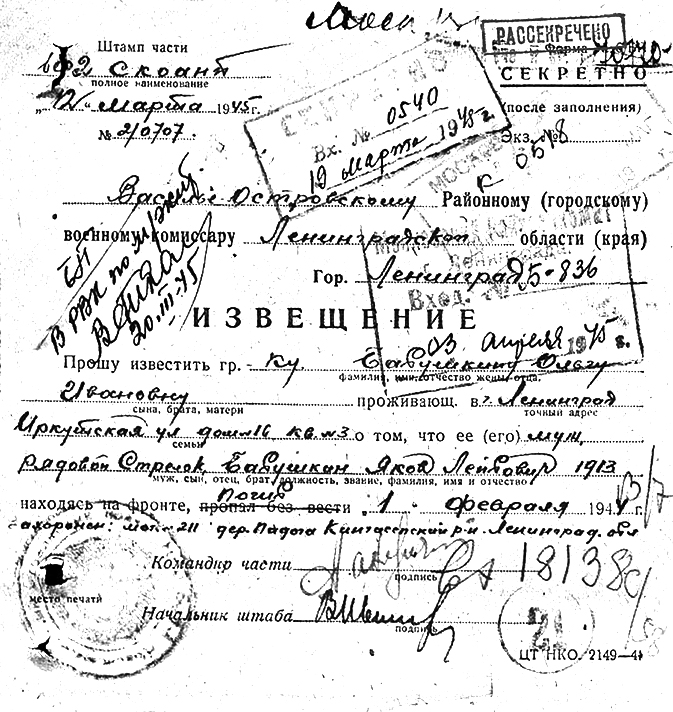 РАССЕКРЕЧЕНО
Штамп части
Форма
СЕКРЕТНО
полное наименование
"12" марта 1945 г.
(после заполнения)
№ 2/0707.
Экз. №
Вх. № 0540
19 марта 1945 г
0518
Василье-Островскому Районному (городскому)
военному комиссару Ленинградской области (края)
Гор. Ленинград
В РВК
20.III-45
Вход. №
ИЗВЕЩЕНИЕ
03 апреля 1945 г.
Прошу известить гр. ку Бабушкину Ольгу
фамилия, имя отчество жены отца,
Ивановну проживающ. в г. Ленинград
сына, брата, матери
точный адрес
Иркутская ул дом 16 кв. № 3 о том, что ее (его) муж
семьи
рядовой Стрелок, Бабушкин Яков 1913
муж, сын, отец, брат, должность, звание, фамилия, имя и отчество
погиб
находясь на фронте, пропал без вести 1 февраля 1944 г.
захоронен: дер. Кингисепский р-н. Ленинград. обл
Командир части
подпись
18138
место печати
Начальник штаба
подпись
21
ЦТ НКО. 2149-41